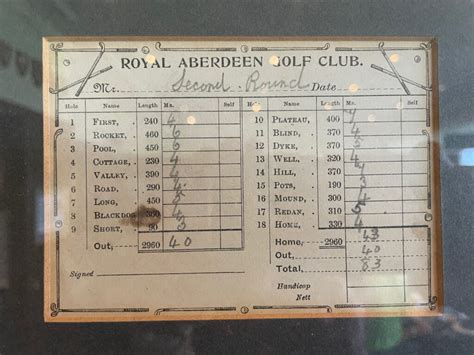 ROYAL ABERDEEN GOLF CLUB.
Mr. Second Round Date
Hole Name Length Mr. Self Hole Name Length Mr. Self
1 FIRST, 240 4 10 PLATEAU, 400
2 ROCKET, 460 6 11 BLIND, 370 4
3 POOL, 450 6 12 DYKE, 370 5
4 COTTAGE, 230 4 13 WELL, 320 4
5 VALLEY, 390 4 14 HILL, 370
6 ROAD, 290 4 15 POTS, 190 3
7 LONG, 450 5 16 MOUND, 300 4
8 BLACKDOG 360 4 17 REDAN, 300 5
9 SHORT, 90 3 18 HOME, 340 4
Out, 2960 40 Home, 2960 43
Out, 40
Total, 83
Signed
Handicap
Nett